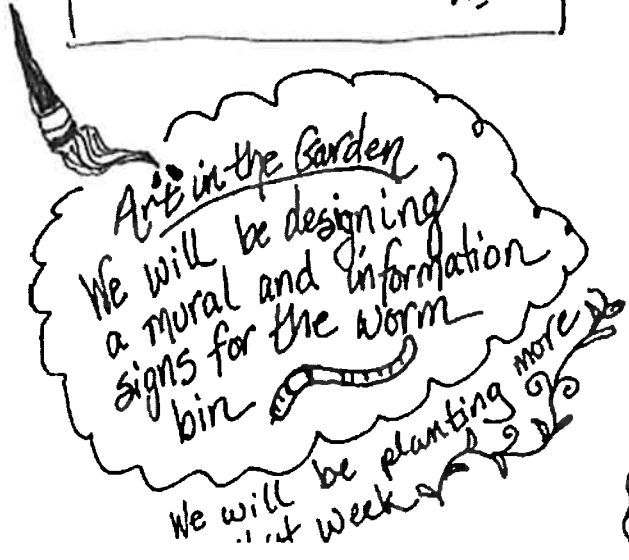 Art in the Garden
We will be designing
a mural and information
signs for the worm
bin
We will be planting more
that week